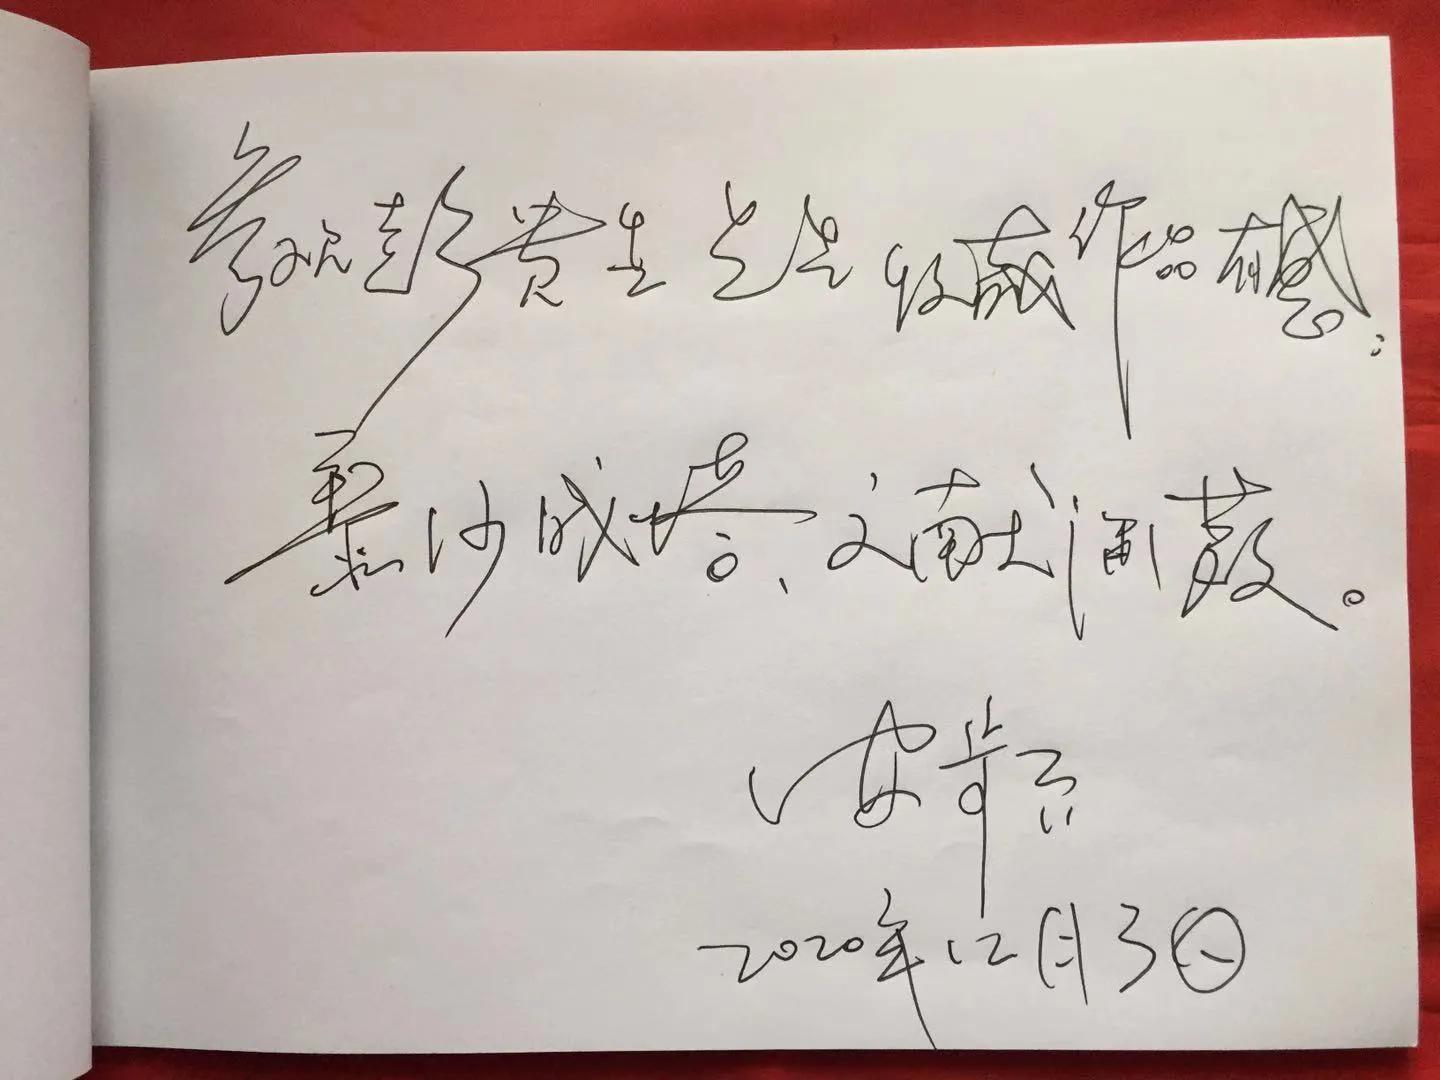 参观彭贵生先生收藏作品有感:
聚沙成塔、文献渊薮。
2020年12月3日